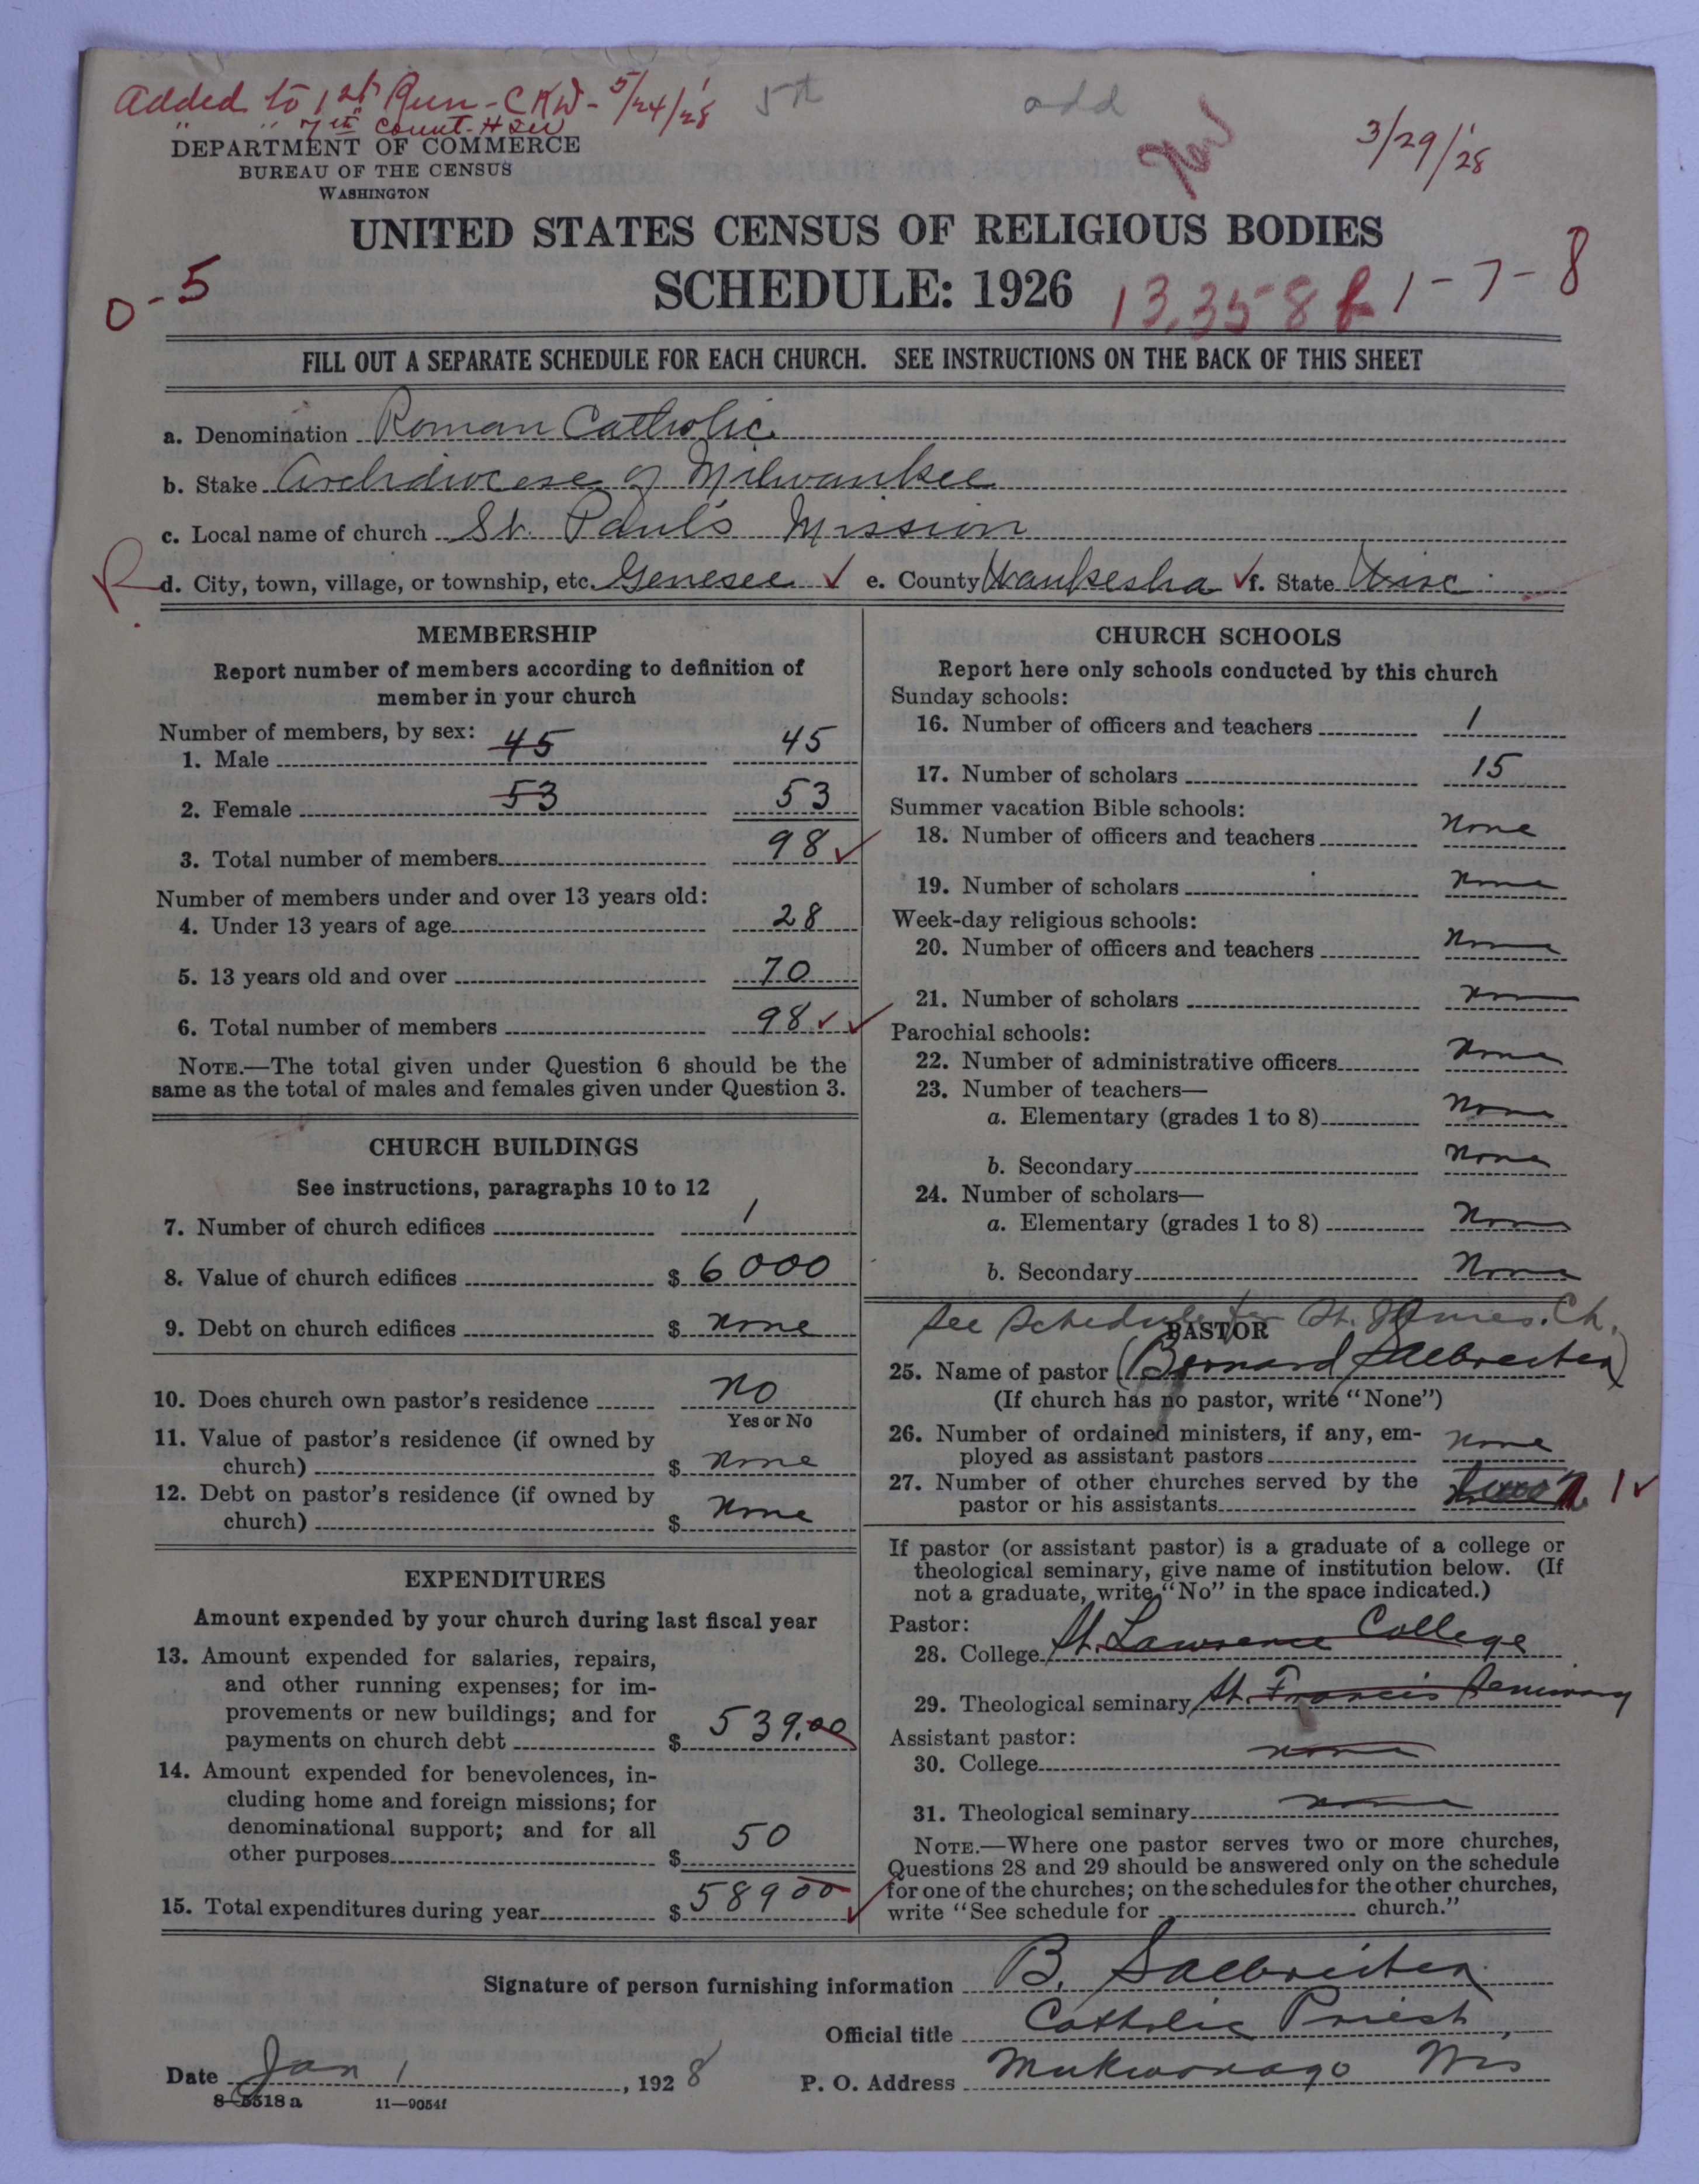 Added to 1st Run - CKW - 5/24/28
" " 7th Count - HSW
5th
add
3/29/28
DEPARTMENT OF COMMERCE
BUREAU OF THE CENSUS
WASHINGTON
UNITED STATES CENSUS OF RELIGIOUS BODIES
SCHEDULE: 1926
0-5
13,358
1-7-8
FILL OUT A SEPARATE SCHEDULE FOR EACH CHURCH. SEE INSTRUCTIONS ON THE BACK OF THIS SHEET
a. Denomination Roman Catholic
b. Stake Archdiocese of Milwaukee
c. Local name of church St. Paul's Mission
R d. City, town, village, or township, etc. Genesee ✓ e. County Waukesha ✓ f. State Wisc
MEMBERSHIP
Report number of members according to definition of
member in your church
Number of members, by sex:
1. Male 45 45
2. Female 53 53
3. Total number of members 98 ✓
Number of members under and over 13 years old:
4. Under 13 years of age 28
5. 13 years old and over 70
6. Total number of members 98 ✓ ✓
NOTE.—The total given under Question 6 should be the
same as the total of males and females given under Question 3.
CHURCH BUILDINGS
See instructions, paragraphs 10 to 12
7. Number of church edifices 1
8. Value of church edifices $ 6000
9. Debt on church edifices $ none
10. Does church own pastor's residence no
Yes or No
11. Value of pastor's residence (if owned by
church) $ none
12. Debt on pastor's residence (if owned by
church) $ none
EXPENDITURES
Amount expended by your church during last fiscal year
13. Amount expended for salaries, repairs,
and other running expenses; for im-
provements or new buildings; and for
payments on church debt $ 539.00
14. Amount expended for benevolences, in-
cluding home and foreign missions; for
denominational support; and for all
other purposes $ 50
15. Total expenditures during year $ 589 00 ✓
CHURCH SCHOOLS
Report here only schools conducted by this church
Sunday schools:
16. Number of officers and teachers 1
17. Number of scholars 15
Summer vacation Bible schools:
18. Number of officers and teachers none
19. Number of scholars none
Week-day religious schools:
20. Number of officers and teachers none
21. Number of scholars none
Parochial schools:
22. Number of administrative officers none
23. Number of teachers—
a. Elementary (grades 1 to 8) none
b. Secondary none
24. Number of scholars—
a. Elementary (grades 1 to 8) none
b. Secondary none
See Schedule for St. James. Ch.
PASTOR
25. Name of pastor (Bernard Salbreiter)
(If church has no pastor, write "None")
26. Number of ordained ministers, if any, em-
ployed as assistant pastors none
27. Number of other churches served by the
pastor or his assistants 1 ✓
If pastor (or assistant pastor) is a graduate of a college or
theological seminary, give name of institution below. (If
not a graduate, write "No" in the space indicated.)
Pastor:
28. College St. Lawrence College
29. Theological seminary St. Francis Seminary
Assistant pastor:
30. College none
31. Theological seminary none
NOTE.—Where one pastor serves two or more churches,
Questions 28 and 29 should be answered only on the schedule
for one of the churches; on the schedules for the other churches,
write "See schedule for church."
Signature of person furnishing information B. Salbreiter
Official title Catholic Priest
Date Jan 1, 1928 P. O. Address Mukwonago Wis
8-5518 a 11—9054f